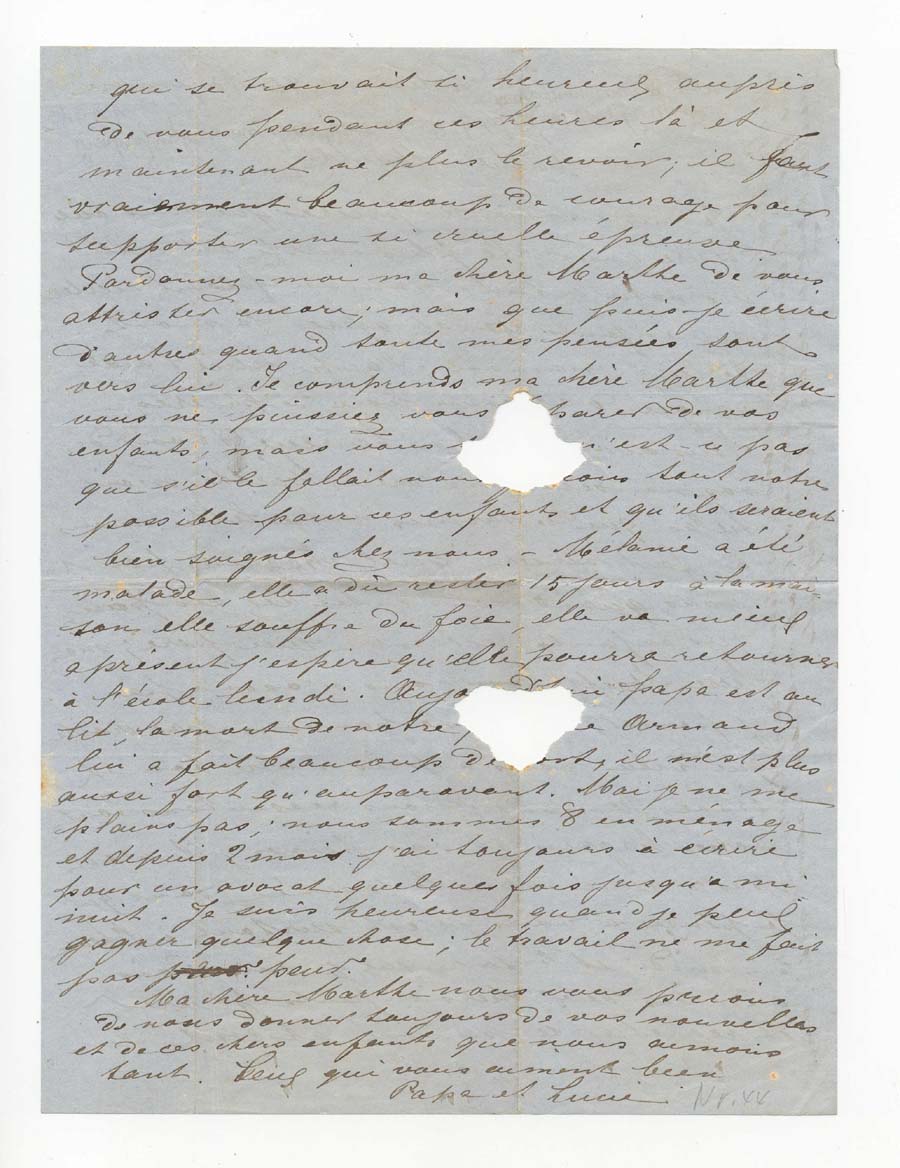 qui se trouvait si heureux auprès
de vous pendant ces heures là et
maintenant ne plus le revoir; il faut
vraiement beaucoup de courage pour
supporter une si cruelle épreuve
Pardonnez-moi ma chère Marthe de vous
attrister encore; mais que puis-je écrire
d'autres quand toute mes pensées sont
vers lui. Je comprends ma chère Marthe que
vous ne puissiez vous parer de vos
enfants, mais vous n'est ce pas
que s'il le fallait nous ions tout notre
possible pour ces enfants et qu'ils seraient
bien soignés chez nous - Mélanie a été
malade, elle a dû rester 15 jours à la mai-
son elle souffre du foie, elle va mieux
a présent j'espère qu'elle pourra retourner
à l'école lundi. Aujo d'hui papa est au
lit la mort de notre Armand
lui a fait beaucoup de tort, il n'est plus
aussi fort qu'auparavant. Moi je ne me
plains pas; nous sommes 8 en ménage
et depuis 2 mois j'ai toujours à écrire
pour un avocat quelques fois jusqu'a mi
nuit. Je suis heureuse quand je peux
gagner quelque chose; le travail ne me fait
pas peur.
Ma chère Marthe nous vous prions
de nous donner toujours de vos nouvelles
et de ces chers enfants que nous aimons
tant. Ceux qui vous aiment bien
Papa et Lucie
Nr. XX